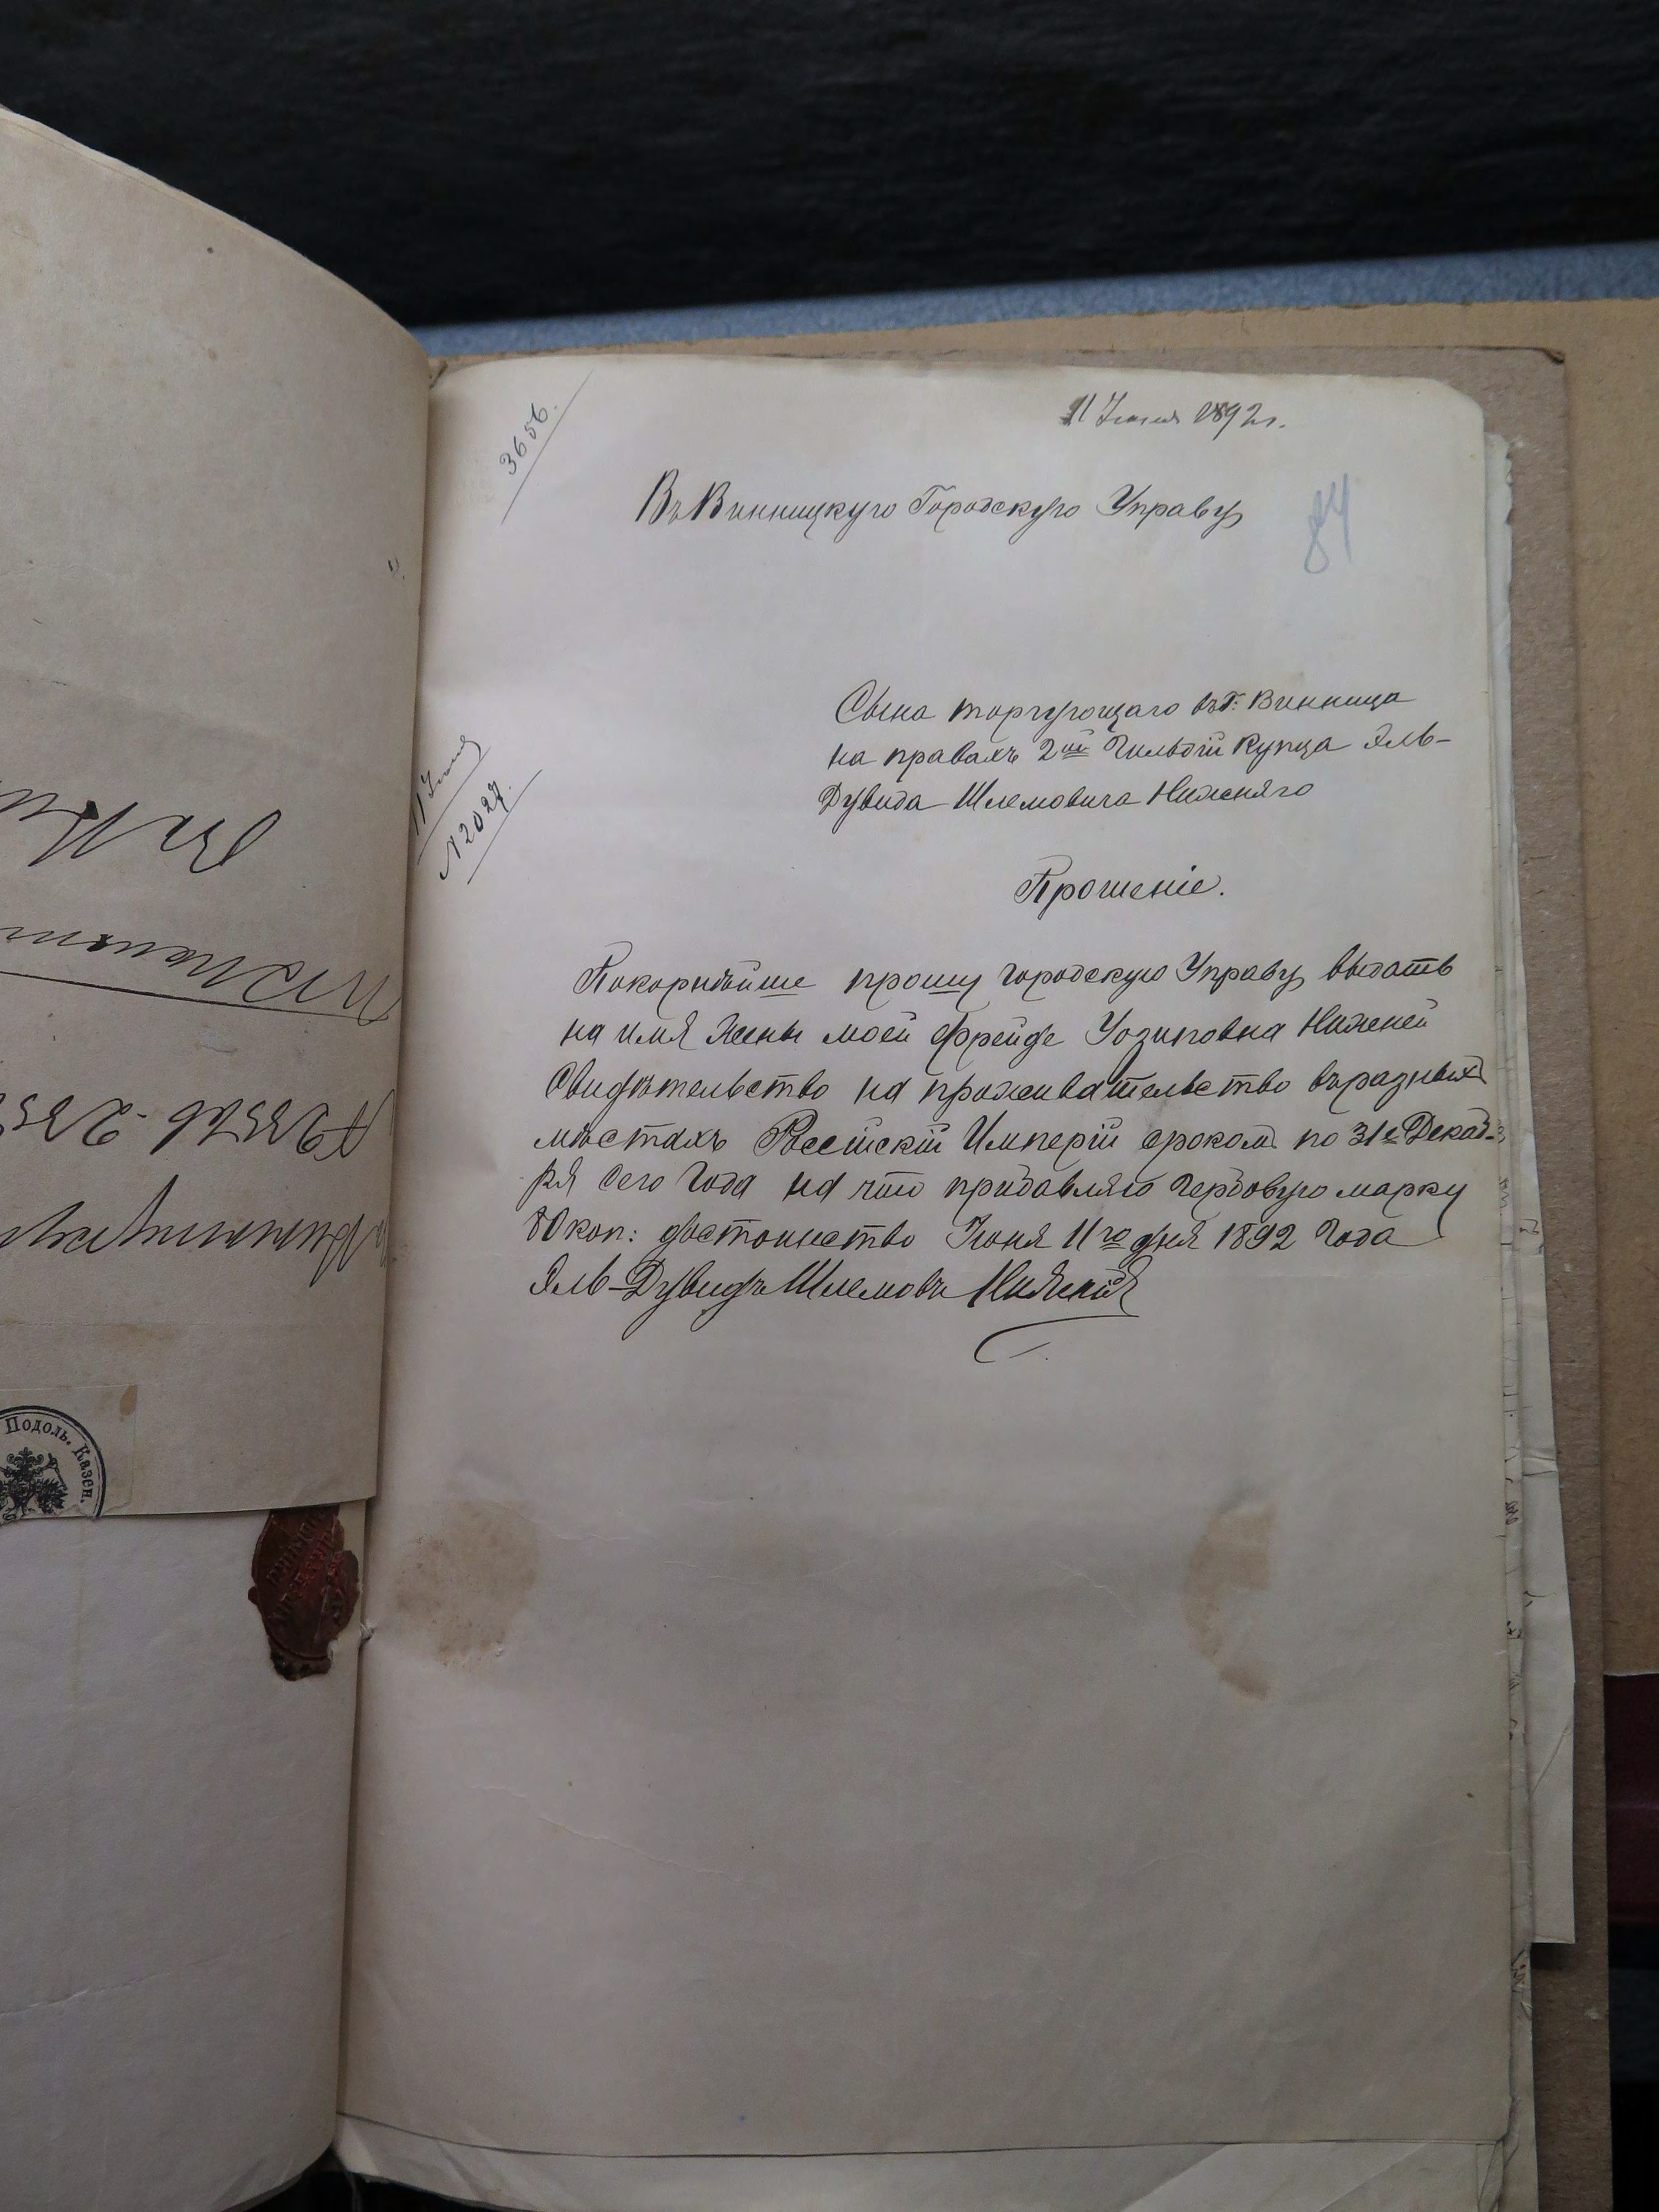 3656.
11 Іюня 1892 г.
Въ Винницкую Городскую Управу
84
Сына торгующаго въ г. Винница
на правахъ 2ой Гильдіи Купца Эль-
Дувида Шлемовича Нижняго
11 Іюня
N 2027.
Прошеніе.
Покорнѣйше прошу Городскую Управу выдать
на имя жены моей Фрейде Іозиповна Нижней
Свидѣтельство на проживательство въ разныхъ
мѣстахъ Россійскій Имперіи срокомъ по 31е Декаб-
ря сего Года на что придавляю гербовую марку
80 коп: достоинство Іюня 11го дня 1892 Года
Эль-Дувидъ Шлемовъ Нижній
Подоль. Казен.